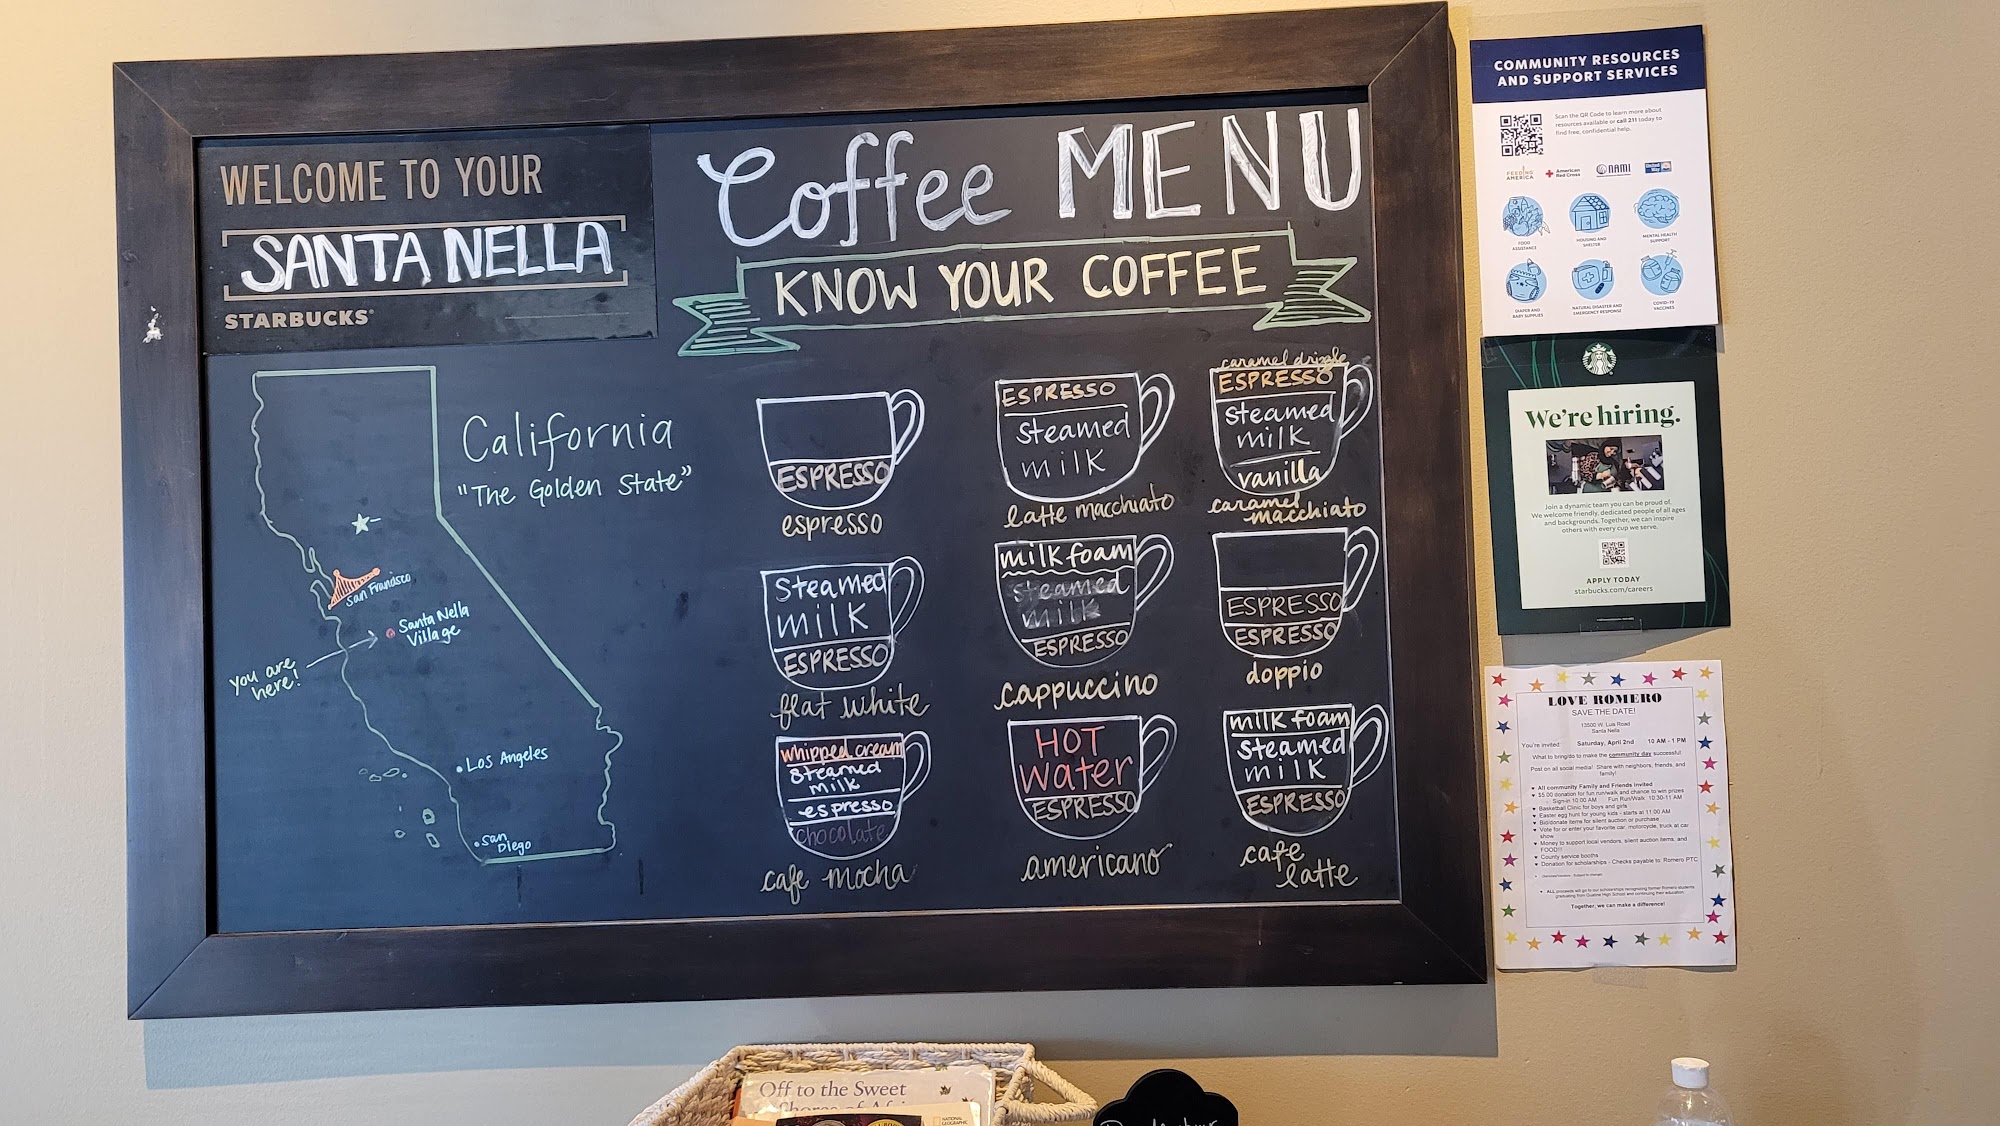 WELCOME TO YOUR
SANTA NELLA
STARBUCKS
Coffee MENU
KNOW YOUR COFFEE
California
"The Golden State"
San Francisco
Santa Nella
Village
you are
here!
Los Angeles
San
Diego
ESPRESSO
espresso
ESPRESSO
steamed
milk
latte macchiato
caramel drizzle
ESPRESSO
steamed
milk
vanilla
caramel
macchiato
steamed
milk
ESPRESSO
flat white
milk foam
steamed
milk
ESPRESSO
cappuccino
ESPRESSO
ESPRESSO
doppio
whipped cream
steamed
milk
espresso
chocolate
cafe mocha
HOT
water
ESPRESSO
americano
milk foam
steamed
milk
ESPRESSO
cafe
latte
COMMUNITY RESOURCES
AND SUPPORT SERVICES
Scan the QR Code to learn more about
resources available or call 211 today to
find free, confidential help.
FEEDING
AMERICA
American
Red Cross
NAMI
United
Way
FOOD
ASSISTANCE
HOUSING AND
SHELTER
MENTAL HEALTH
SUPPORT
DIAPER AND
BABY SUPPLIES
NATURAL DISASTER AND
EMERGENCY RESPONSE
COVID-19
VACCINES
We're hiring.
Join a dynamic team you can be proud of.
We welcome friendly, dedicated people of all ages
and backgrounds. Together, we can inspire
others with every cup we serve.
APPLY TODAY
starbucks.com/careers
LOVE ROMERO
SAVE THE DATE!
13500 W. Luis Road
Santa Nella
You're invited: Saturday, April 2nd 10 AM - 1 PM
What to bring/do to make the community day successful
Post on all social media! Share with neighbors, friends, and
family!
All community Family and Friends Invited
$5.00 donation for fun run/walk and chance to win prizes
Sign-in 10:00 AM Fun Run/Walk 10:30-11 AM
Basketball Clinic for boys and girls
Easter egg hunt for young kids - starts at 11:00 AM
Bid/donate items for silent auction or purchase
Vote for or enter your favorite car, motorcycle, truck at car
show
Money to support local vendors, silent auction items, and
FOOD!!!
County service booths
Donation for scholarships - Checks payable to: Romero PTC
ALL proceeds will go to our scholarships recognizing former Romero students
graduating from Gustine High School and continuing their education.
Together, we can make a difference!
Off to the Sweet
Shores of
NATIONAL
GEOGRAPHIC